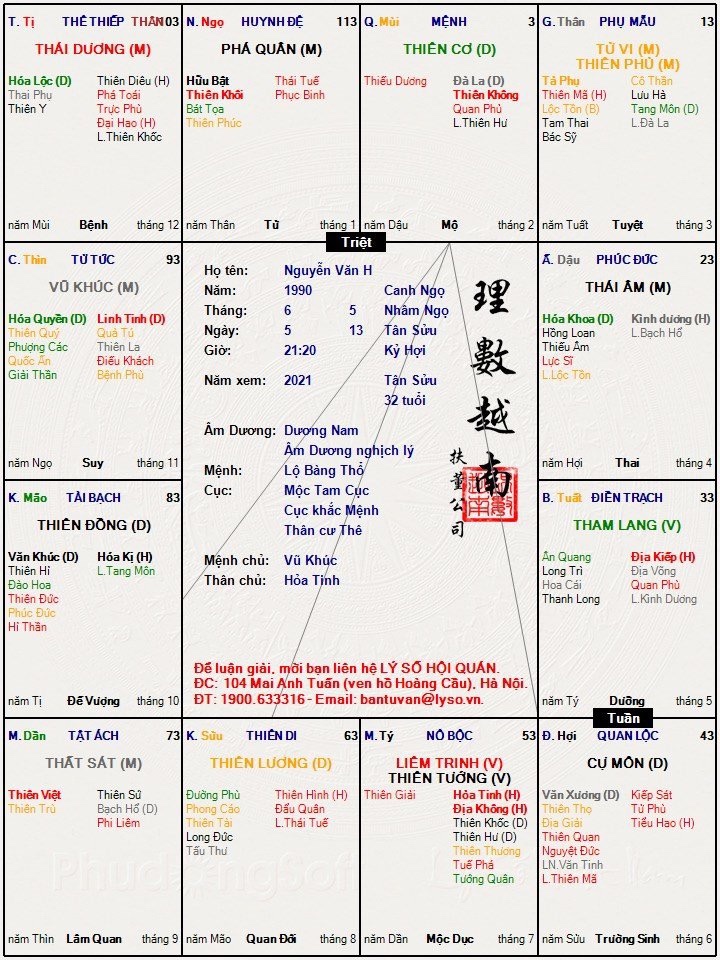 T. Tị THÊ THIẾP THÂN 103
THÁI DƯƠNG (M)
Hóa Lộc (Đ) Thiên Diêu (H)
Thai Phụ Phá Toái
Thiên Y Trực Phù
Đại Hao (H)
L.Thiên Khốc
năm Mùi Bệnh tháng 12
N. Ngọ HUYNH ĐỆ 113
PHÁ QUÂN (M)
Hữu Bật Thái Tuế
Thiên Khôi Phục Binh
Bát Tọa
Thiên Phúc
năm Thân Tử tháng 1
Q. Mùi MỆNH 3
THIÊN CƠ (Đ)
Thiếu Dương Đà La (Đ)
Thiên Không
Quan Phủ
L.Thiên Hư
năm Dậu Mộ tháng 2
G. Thân PHỤ MẪU 13
TỬ VI (M)
THIÊN PHỦ (M)
Tả Phụ Cô Thần
Thiên Mã (H) Lưu Hà
Lộc Tồn (B) Tang Môn (Đ)
Tam Thai L.Đà La
Bác Sỹ
năm Tuất Tuyệt tháng 3
Triệt
C. Thìn TỬ TỨC 93
VŨ KHÚC (M)
Hóa Quyền (Đ) Linh Tinh (Đ)
Thiên Quý Quả Tú
Phượng Các Thiên La
Quốc Ấn Điếu Khách
Giải Thần Bệnh Phù
năm Ngọ Suy tháng 11
Họ tên: Nguyễn Văn H
Năm: 1990 Canh Ngọ
Tháng: 6 5 Nhâm Ngọ
Ngày: 5 13 Tân Sửu
Giờ: 21:20 Kỷ Hợi
Năm xem: 2021 Tân Sửu
32 tuổi
Âm Dương: Dương Nam
Âm Dương nghịch lý
Mệnh: Lộ Bàng Thổ
Cục: Mộc Tam Cục
Cục khắc Mệnh
Thân cư Thê
Mệnh chủ: Vũ Khúc
Thân chủ: Hỏa Tinh
理數越南
扶董公司
Để luận giải, mời bạn liên hệ LÝ SỐ HỘI QUÁN.
ĐC: 104 Mai Anh Tuấn (ven hồ Hoàng Cầu), Hà Nội.
ĐT: 1900.633316 - Email: bantuvan@lyso.vn.
Ấ. Dậu PHÚC ĐỨC 23
THÁI ÂM (M)
Hóa Khoa (Đ) Kình dương (H)
Hồng Loan L.Bạch Hổ
Thiếu Âm
Lực Sĩ
L.Lộc Tồn
năm Hợi Thai tháng 4
K. Mão TÀI BẠCH 83
THIÊN ĐỒNG (Đ)
Văn Khúc (Đ) Hóa Kị (H)
Thiên Hỉ L.Tang Môn
Đào Hoa
Thiên Đức
Phúc Đức
Hỉ Thần
năm Tị Đế Vượng tháng 10
B. Tuất ĐIỀN TRẠCH 33
THAM LANG (V)
Ân Quang Địa Kiếp (H)
Long Trì Địa Võng
Hoa Cái Quan Phù
Thanh Long L.Kình Dương
năm Tý Dưỡng tháng 5
Tuần
M. Dần TẬT ÁCH 73
THẤT SÁT (M)
Thiên Việt Thiên Sứ
Thiên Trù Bạch Hổ (Đ)
Phi Liêm
năm Thìn Lâm Quan tháng 9
K. Sửu THIÊN DI 63
THIÊN LƯƠNG (Đ)
Đường Phù Thiên Hình (H)
Phong Cáo Đẩu Quân
Thiên Tài L.Thái Tuế
Long Đức
Tấu Thư
năm Mão Quan Đới tháng 8
M. Tý NÔ BỘC 53
LIÊM TRINH (V)
THIÊN TƯỚNG (V)
Thiên Giải Hỏa Tinh (H)
Địa Không (H)
Thiên Khốc (Đ)
Thiên Hư (Đ)
Thiên Thương
Tuế Phá
Tướng Quân
năm Dần Mộc Dục tháng 7
Đ. Hợi QUAN LỘC 43
CỰ MÔN (Đ)
Văn Xương (Đ) Kiếp Sát
Thiên Thọ Tử Phù
Địa Giải Tiểu Hao (H)
Thiên Quan
Nguyệt Đức
LN.Văn Tinh
L.Thiên Mã
năm Sửu Trường Sinh tháng 6